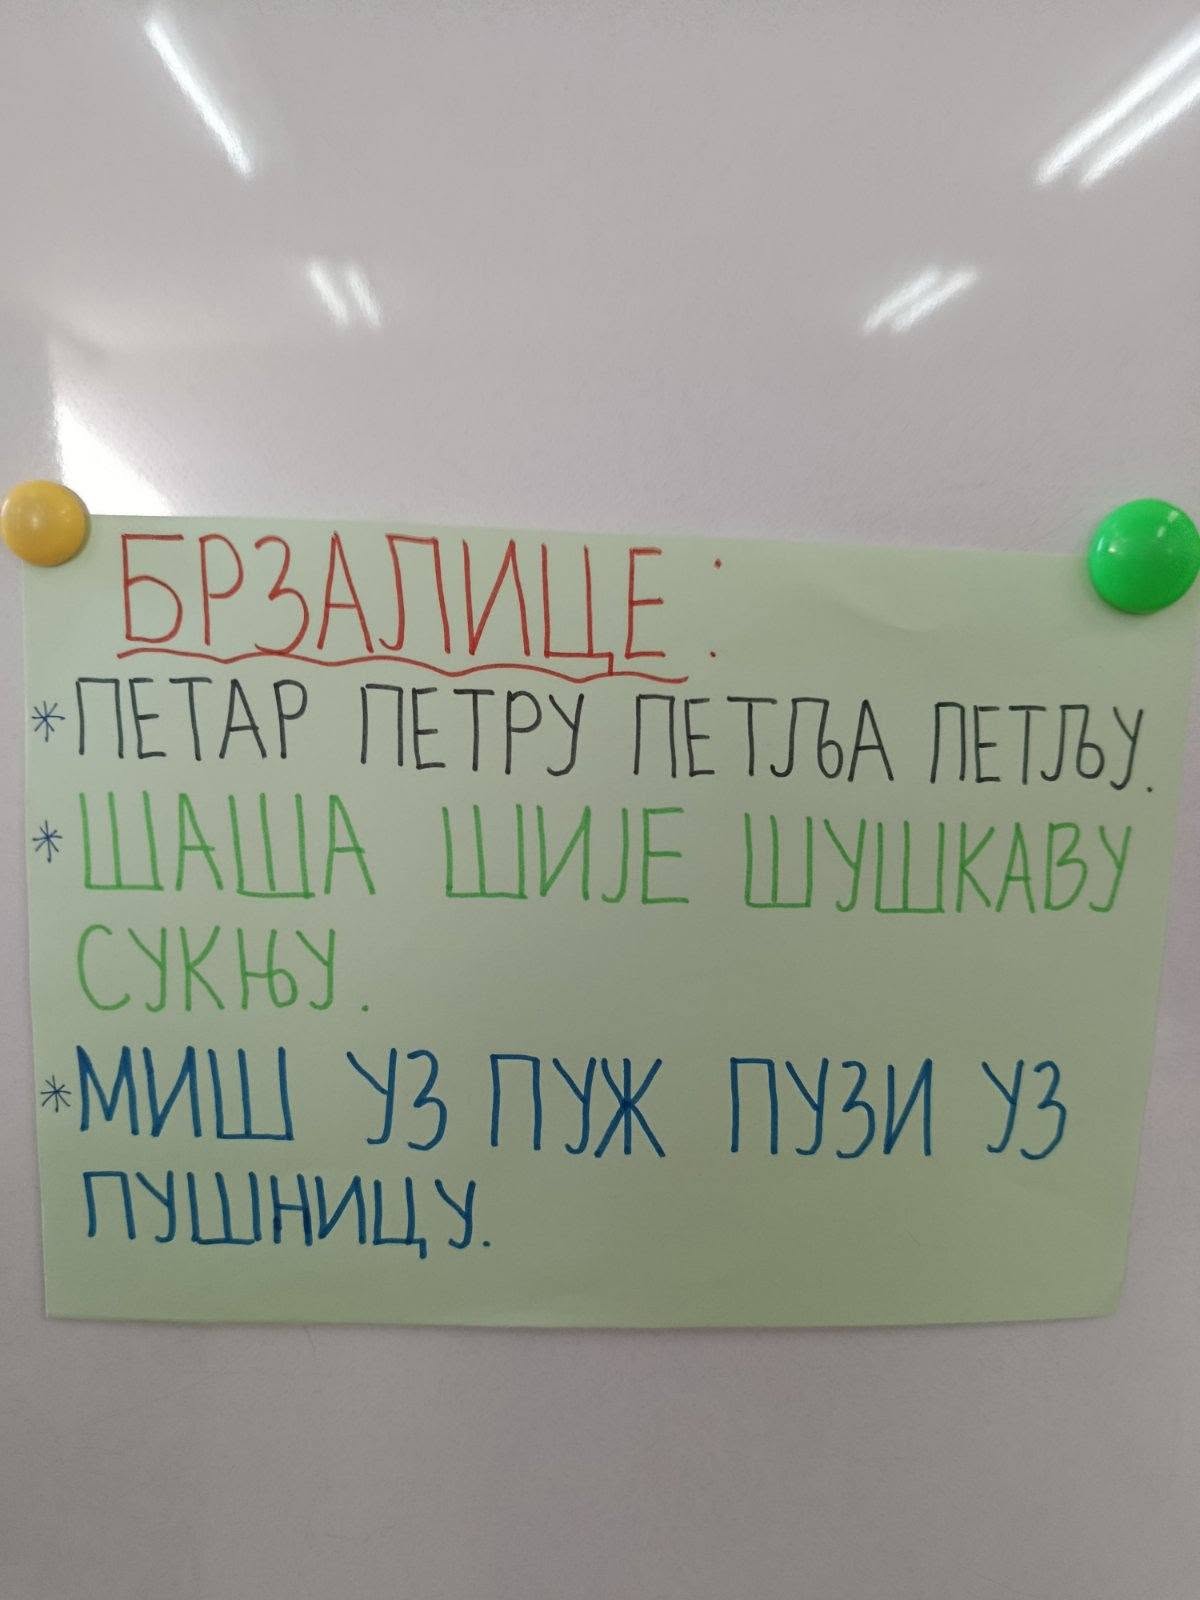 БРЗАЛИЦЕ:
*ПЕТАР ПЕТРУ ПЕТЉА ПЕТЉУ.
*ШАША ШИЈЕ ШУШКАВУ
СУКЊУ.
*МИШ УЗ ПУЖ ПУЗИ УЗ
ПУШНИЦУ.